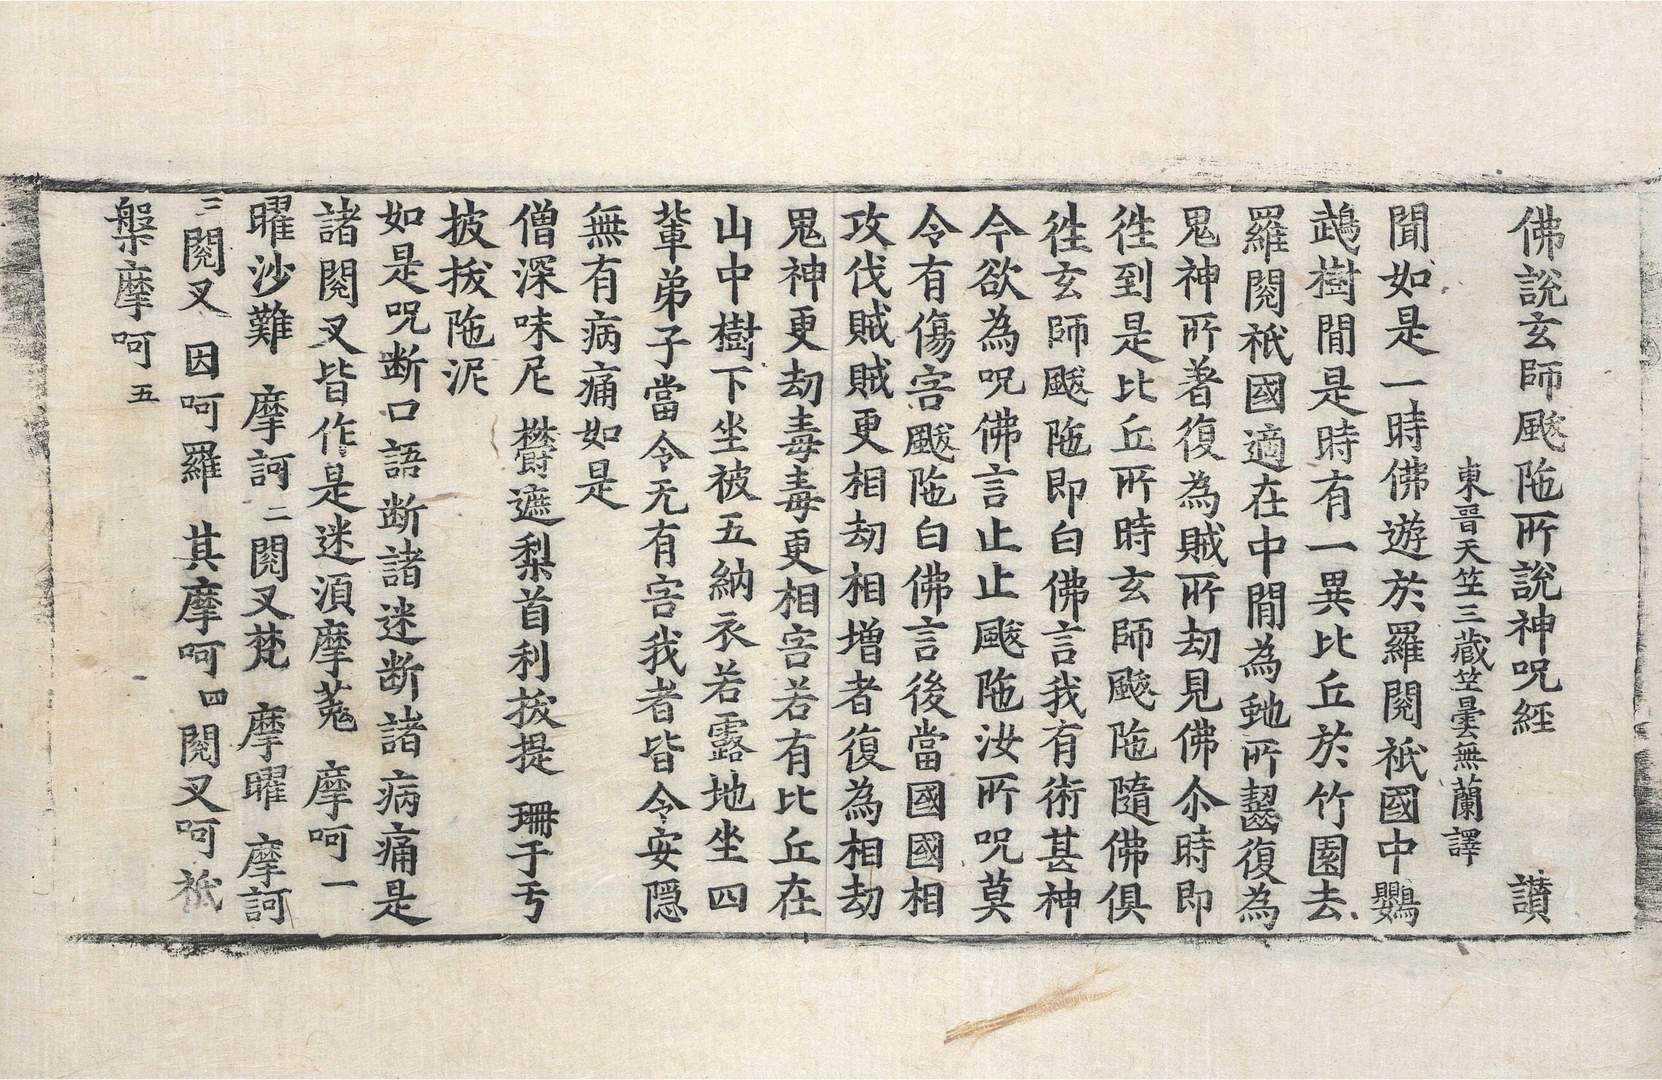 佛說玄師颰陁所說神呪經 讃
東晋天竺三藏竺曇無蘭譯
聞如是一時佛遊於羅閱祇國中鸚
鵡樹閒是時有一異比丘於竹園去
羅閱祇國適在中閒為虵所齧復為
鬼神所著復為賊所劫見佛尒時即
徃到是比丘所時玄師颰陁隨佛俱
徃玄師颰陁即白佛言我有術甚神
今欲為呪佛言止止颰陁汝所呪莫
令有傷害颰陁白佛言後當國國相
攻伐賊賊更相劫相增者復為相劫
鬼神更劫毒毒更相害若有比丘在
山中樹下坐被五納衣若露地坐四
輩弟子當令无有害我者皆令安隱
無有病痛如是
僧深味尼 欝遮梨首利拔提 珊于亐
披拔陁泥
如是呪断口語断諸迷断諸病痛是
諸閱叉皆作是迷湏摩菟 摩呵一
曜沙難 摩訶二閱叉梵 摩曜 摩訶
三閱叉 因呵羅 其摩呵四閱叉呵祇
槃摩呵五